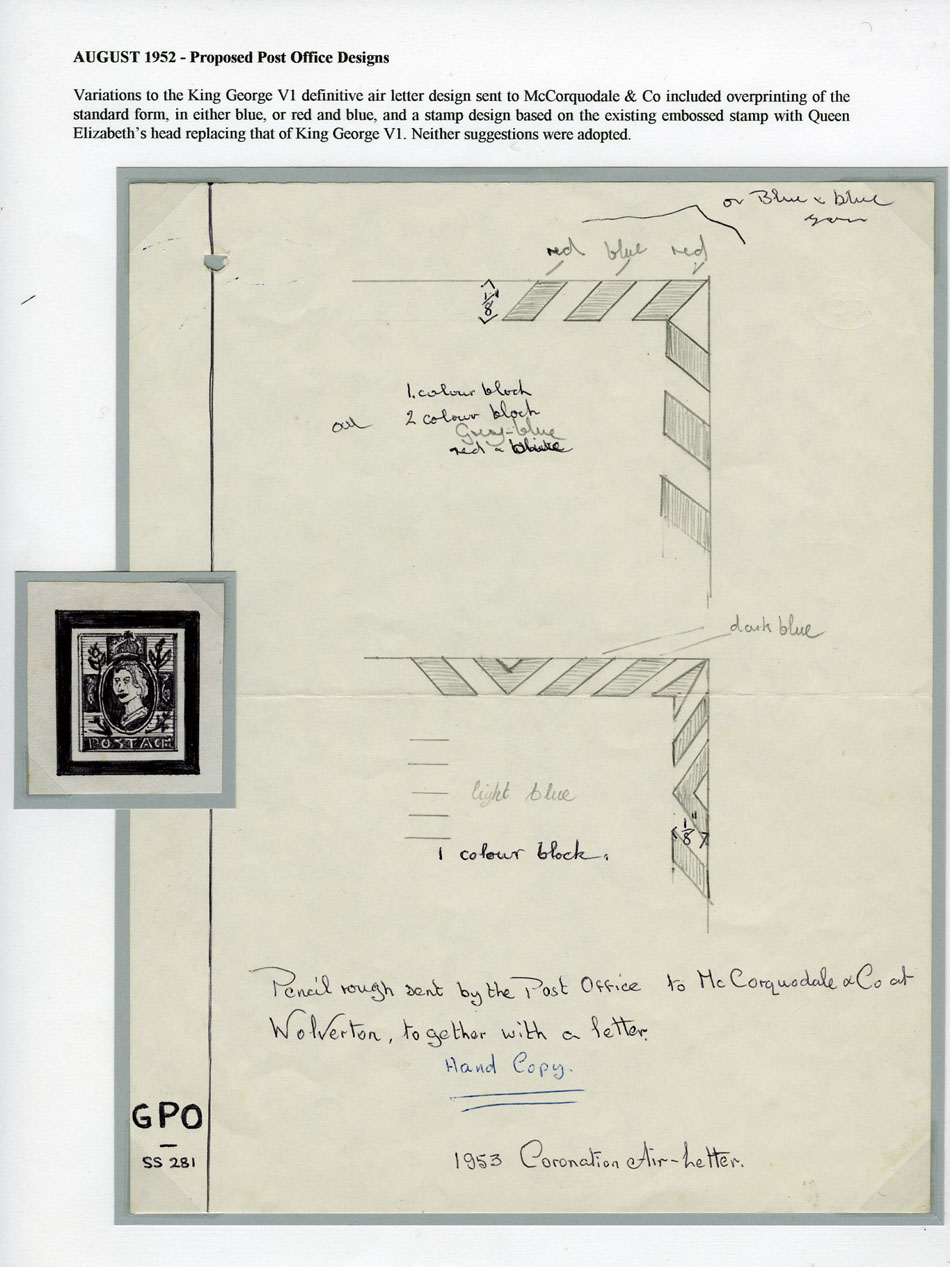 AUGUST 1952 - Proposed Post Office Designs
Variations to the King George V1 definitive air letter design sent to McCorquodale & Co included overprinting of the
standard form, in either blue, or red and blue, and a stamp design based on the existing embossed stamp with Queen
Elizabeth's head replacing that of King George V1. Neither suggestions were adopted.
or Blue & blue
red blue red
1/8
1. colour block
2 colour block
Grey-blue
red &
dark blue
POSTAGE
light blue
1/8"
1 colour block.
Pencil rough sent by the Post Office to McCorquodale & Co at
Wolverton, together with a letter.
Hand Copy.
GPO
SS 281
1953 Coronation Air-Letter.